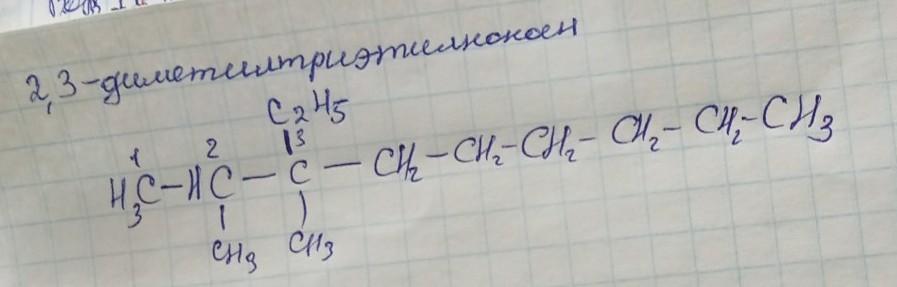 2,3-диметилтриэтилнонен
C2H5
1 2 3
H3C-HC-C-CH2-CH2-CH2-CH2-CH2-CH3
CH3 CH3